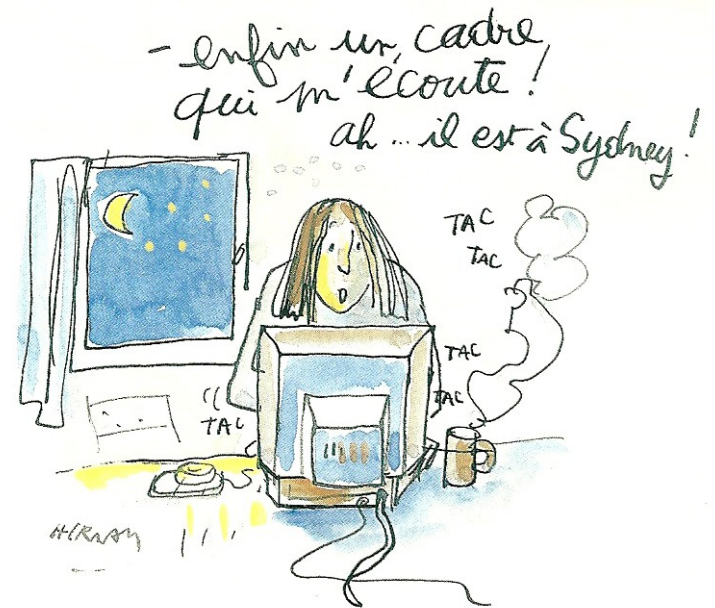 - enfin un cadre
qui m'écoute !
ah ... il est à Sydney !
TAC
TAC
TAC
TAC
TAC